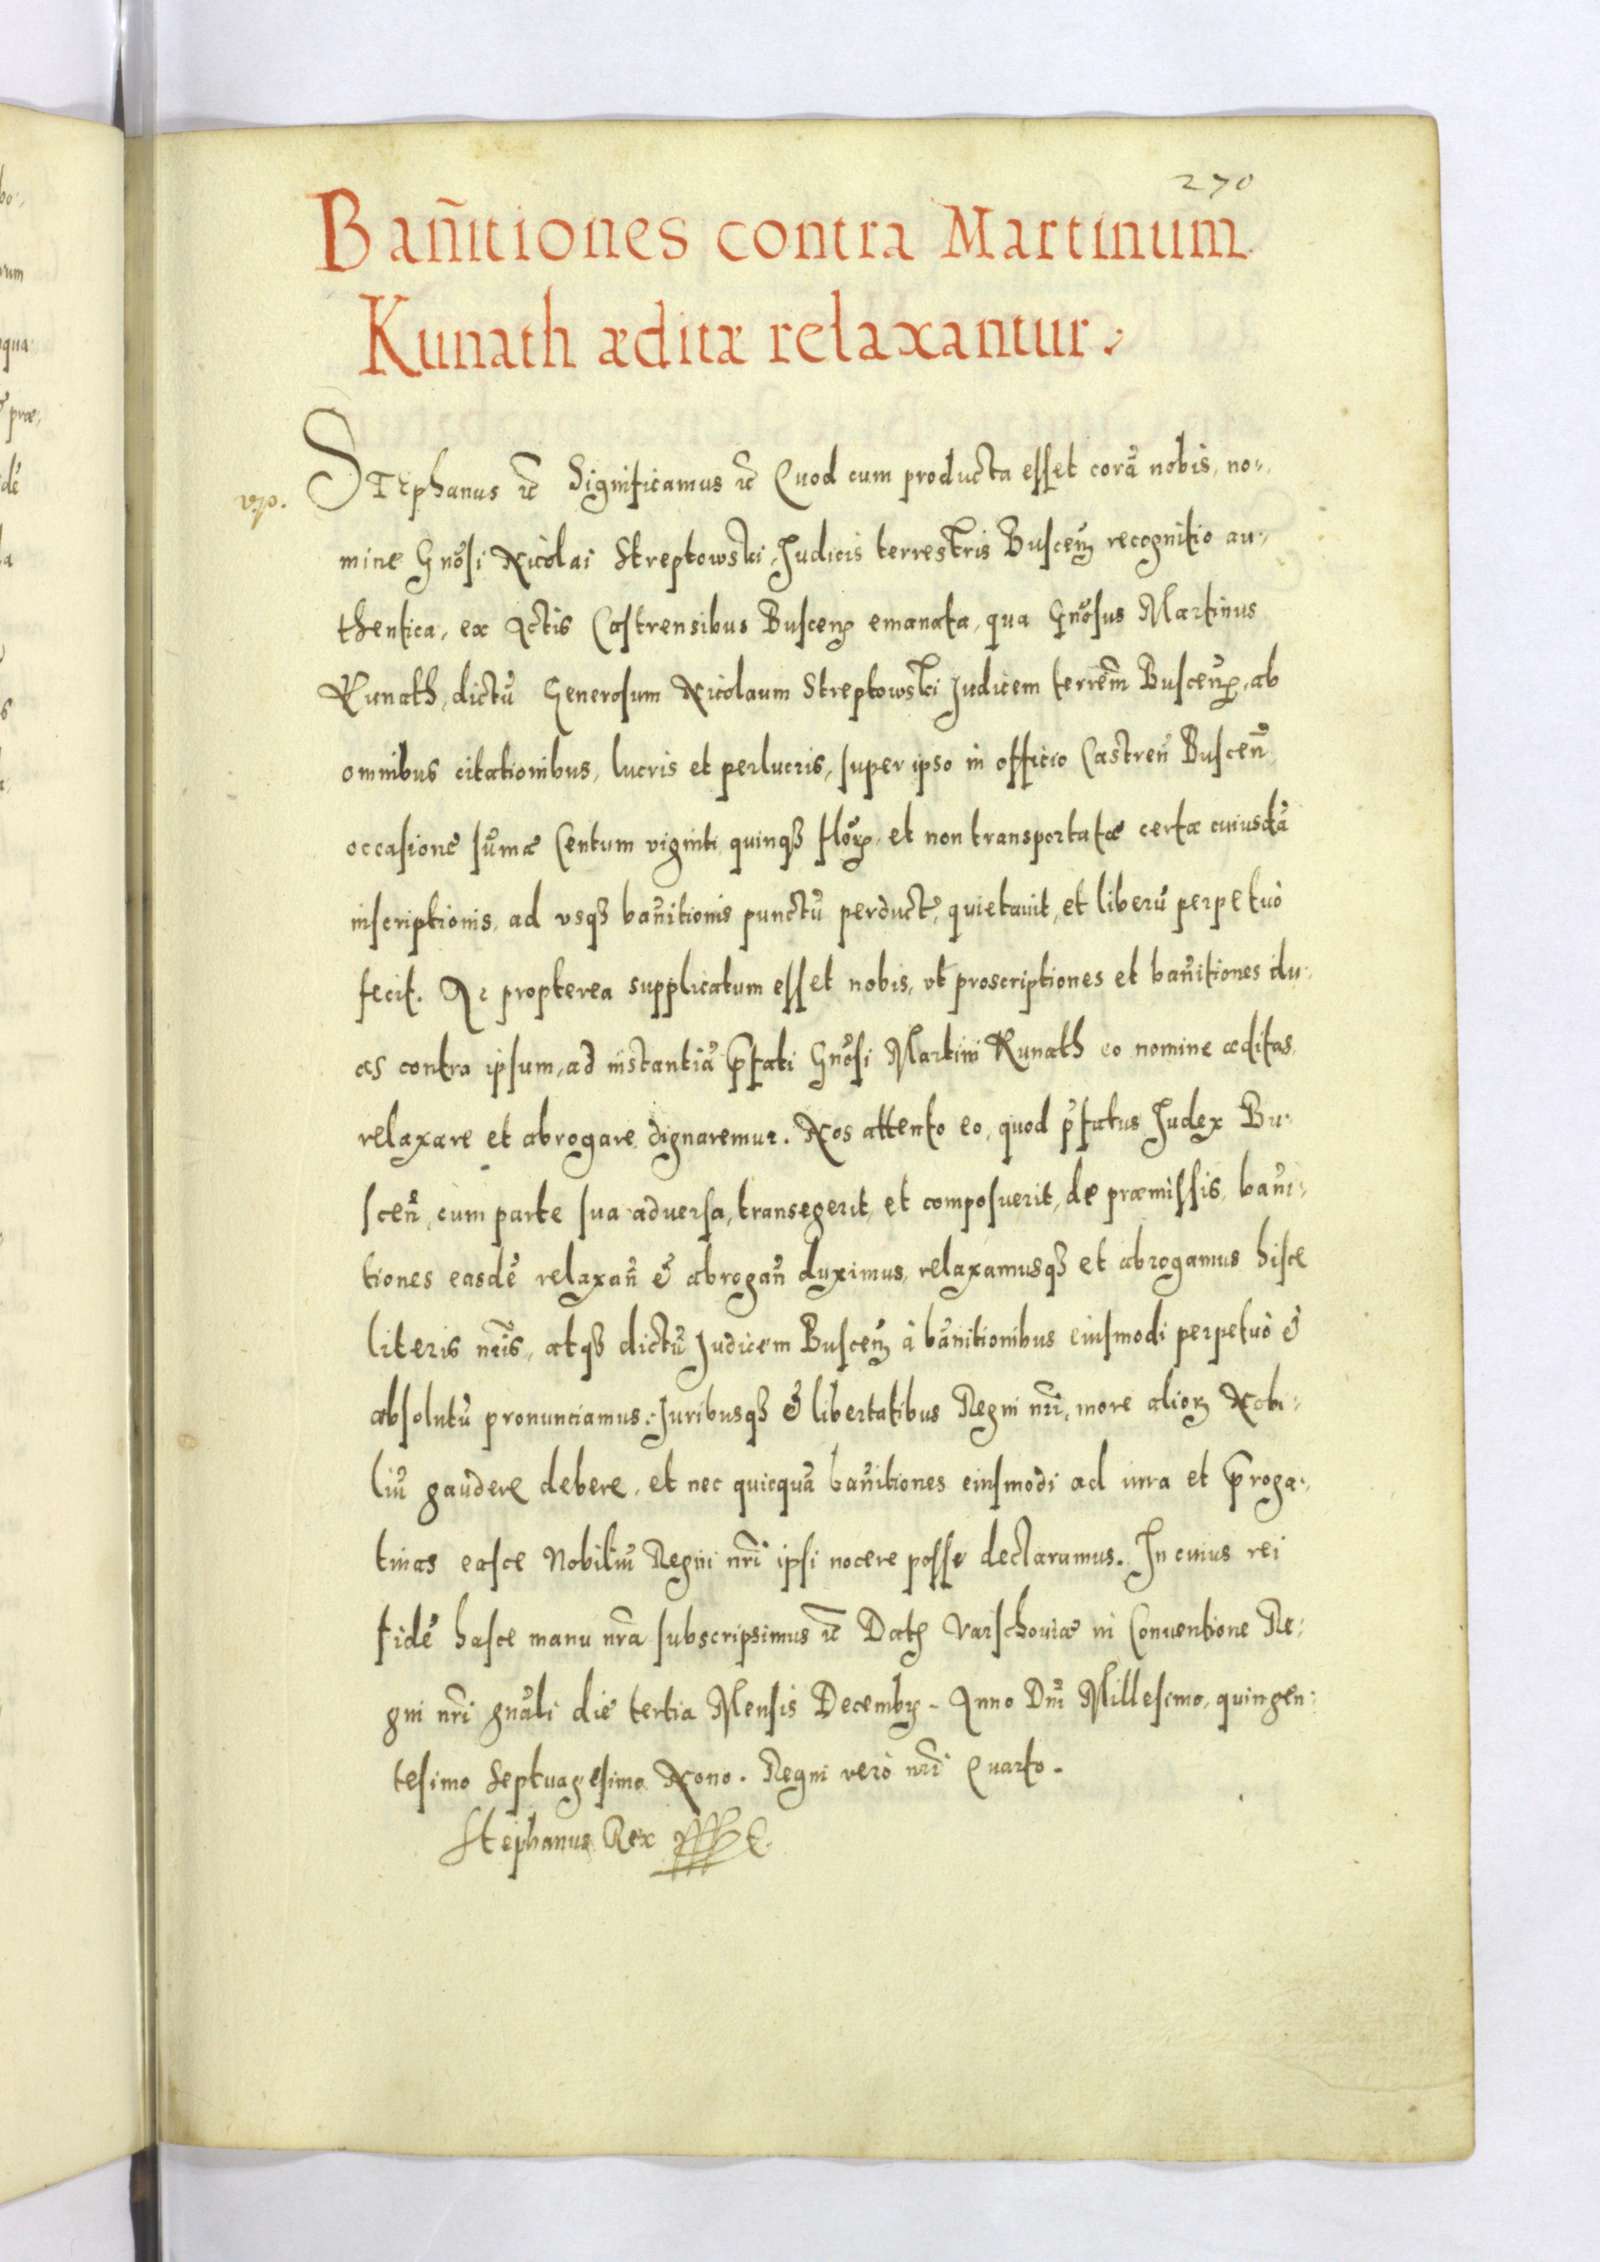 270
Bañitiones contra Martinum
Kunath æditæ relaxantur.
Stephanus etc Significamus etc Quod cum producta esset corã nobis, no-
mine Gnõsi Nicolai Streptowski, Judicis terrestris Buscen recognitio au-
thentica, ex Actis Castrensibus Buscen emanata, qua Gnõsus Martinus
Kunath, dictũ Generosum Nicolaum Streptowski Judicem terrem̃ Buscen, ab
omnibus citationibus, lucris et perlucris, super ipso in officio Castreñ Busceñ
occasione sũmæ Centum viginti quinqꝫ flor, et non transportatæ certæ cuiusdã
inscriptionis, ad vsqꝫ bañitionis punctũ perduct, quietauit, et liberũ perpetuò
fecit. Ac propterea supplicatum esset nobis, vt proscriptiones et bañitiones du-
as contra ipsum, ad instantiã p̃fati Gnõsi Martini Kunath eo nomine æditas
relaxare et abrogare dignaremur. Nos attento eo, quod p̃fatus Judex Bu-
sceñ, cum parte sua aduersa, transegerit, et composuerit, de præmissis, bañi-
tiones easdẽ relaxañ & abrogañ duximus, relaxamusqꝫ et abrogamus hisce
literis nr̃is, atqꝫ dictũ Judicem Buscen à bañitionibus eiusmodi perpetuò &
absolutũ pronunciamus. Juribusqꝫ & libertatibus Regni nr̃i, more alioꝝ Nobi-
liũ gaudere debere, et nec quicquã bañitiones eiusmodi ad iura et p̃roga-
tiuas easce Nobiliũ Regni nr̃i ipsi nocere posse declaramus. In cuius rei
fidẽ hasce manu nr̃a subscripsimus etc Datꝫ Varschouiæ in Conuentione Re-
gni nr̃i gnãli die tertia Mensis Decembꝝ - Anno Dñi Millesimo, quingen-
tesimo Septuagesimo Nono. Regni verò nr̃i Quarto.
Stephanus Rex